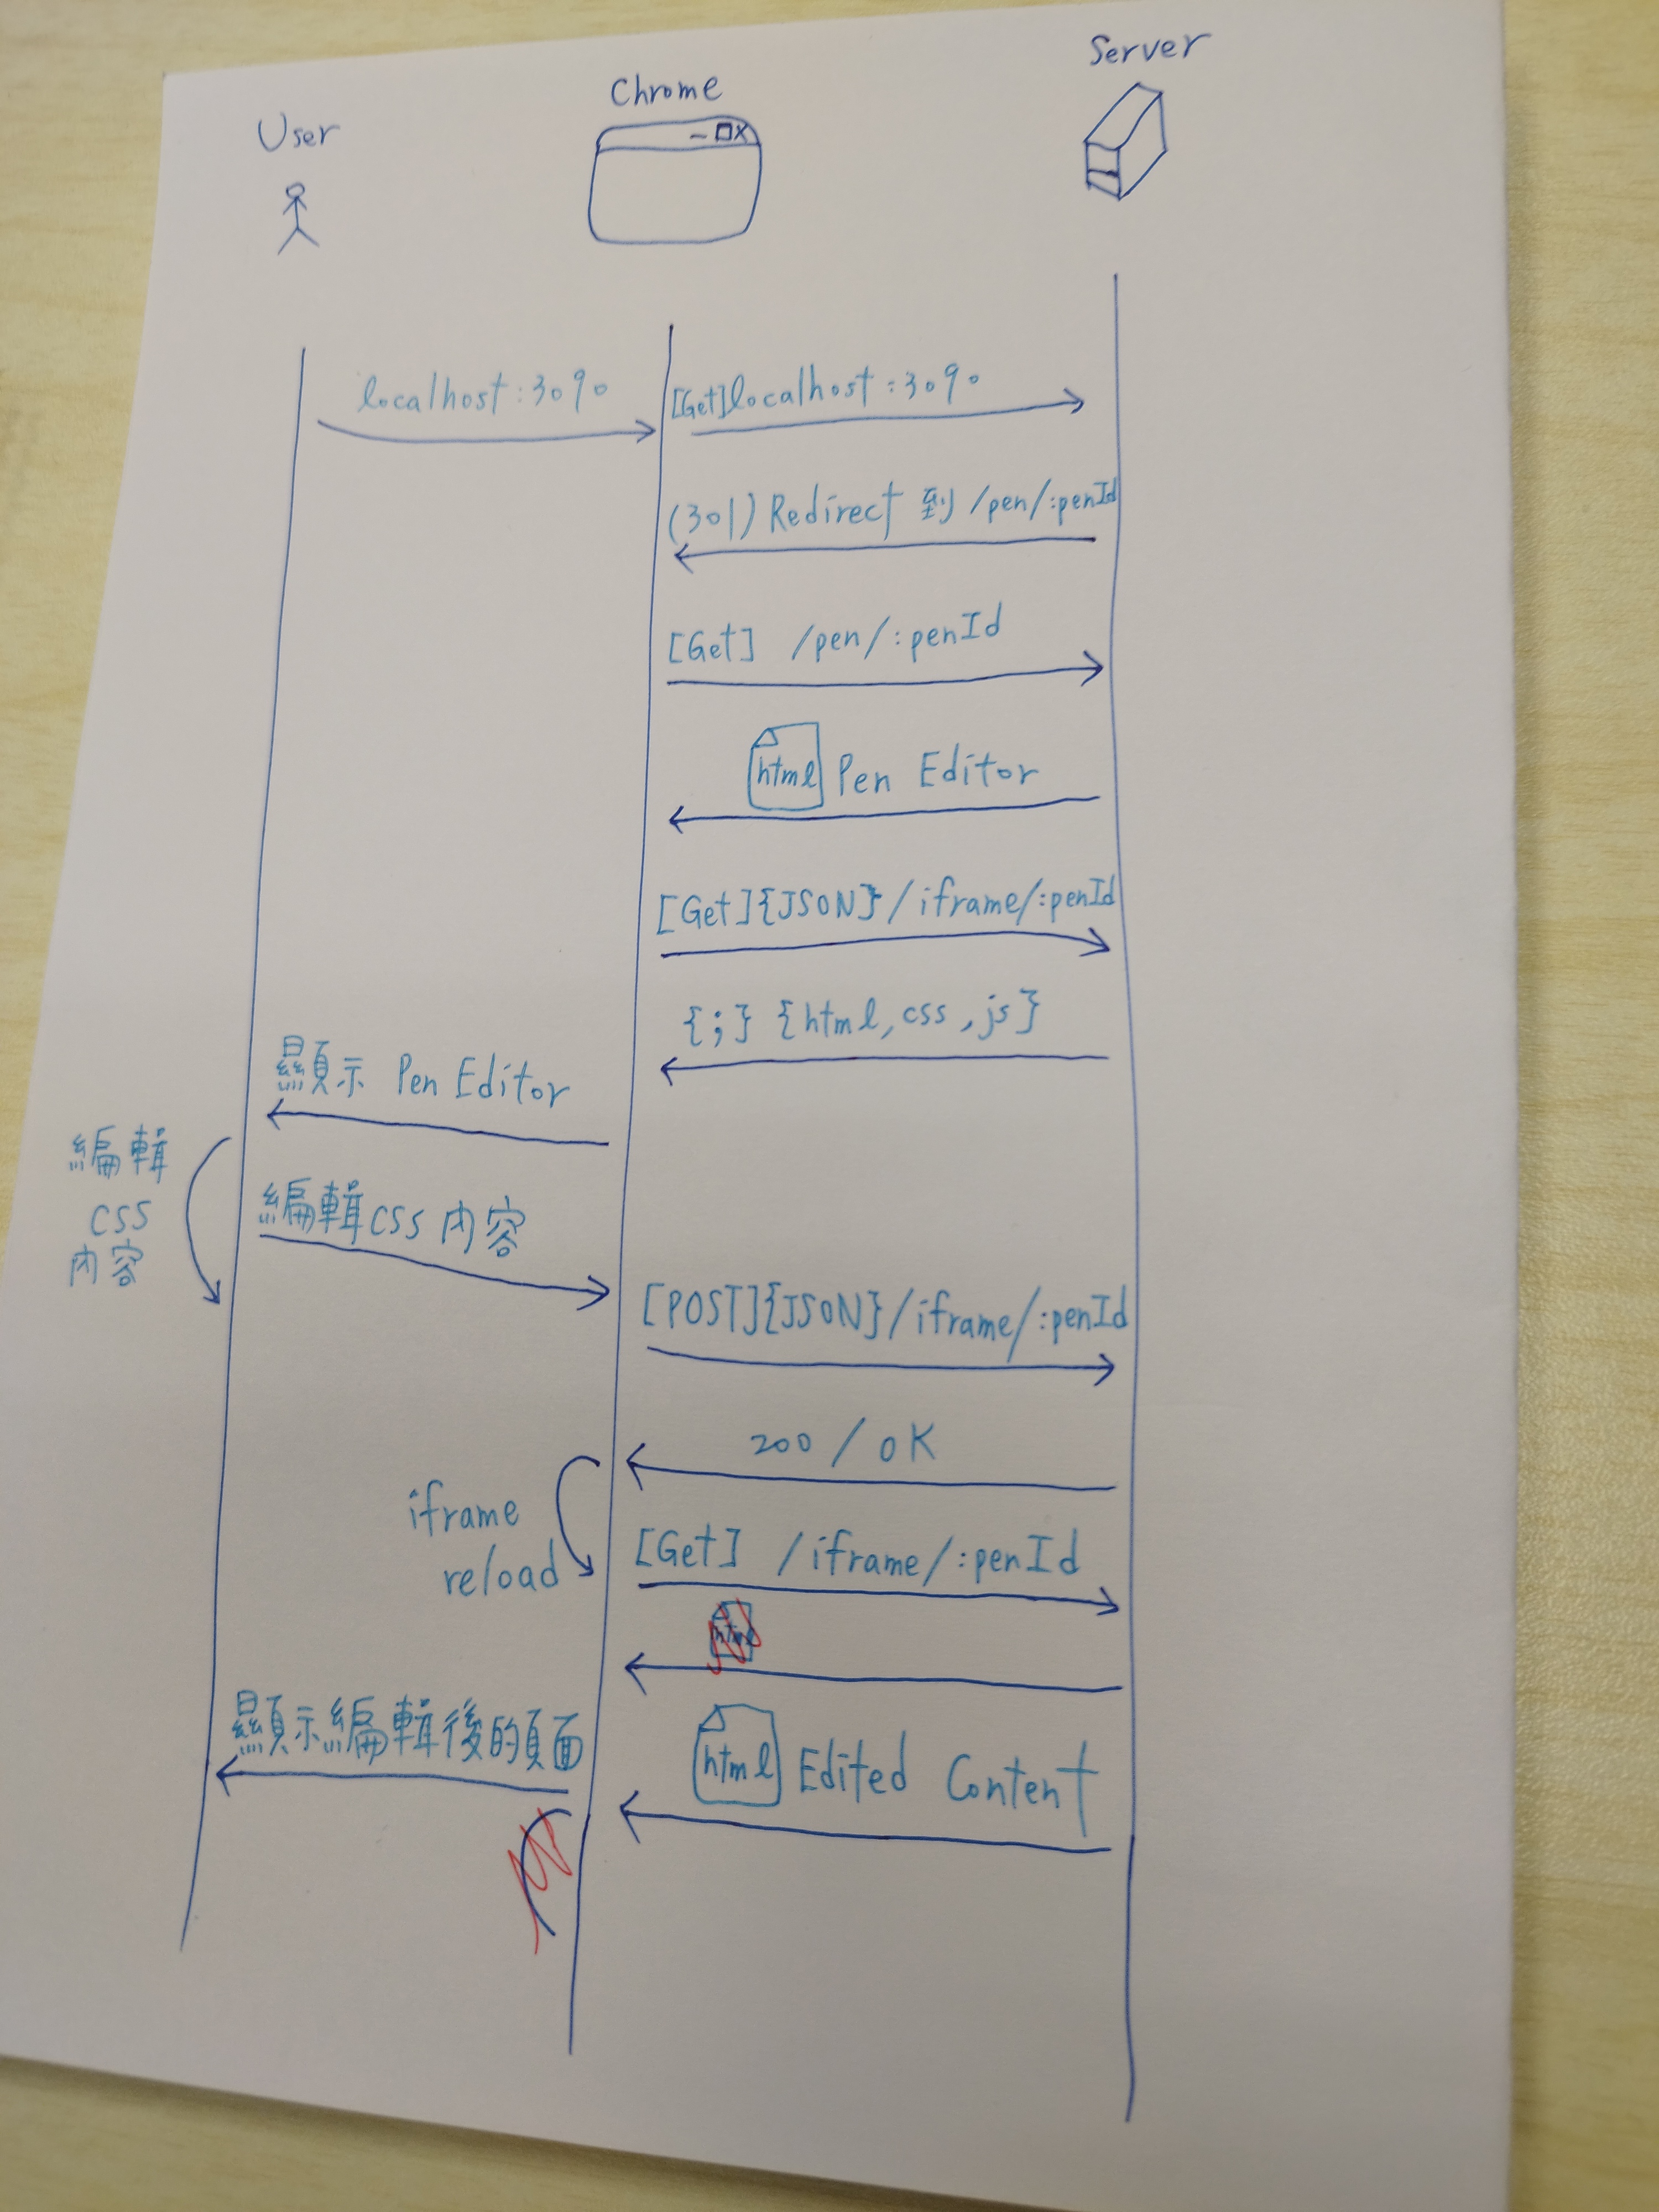 Server
Chrome
User
localhost:3090
[Get]localhost:3090
(301) Redirect 到 /pen/:penId
[Get] /pen/:penId
html Pen Editor
[Get]{JSON}/iframe/:penId
{;} {html,css,js}
顯示 Pen Editor
編輯
CSS
內容
編輯css 內容
[POST]{JSON}/iframe/:penId
200/OK
iframe
reload
[Get] /iframe/:penId
html
顯示編輯後的頁面
html Edited Content